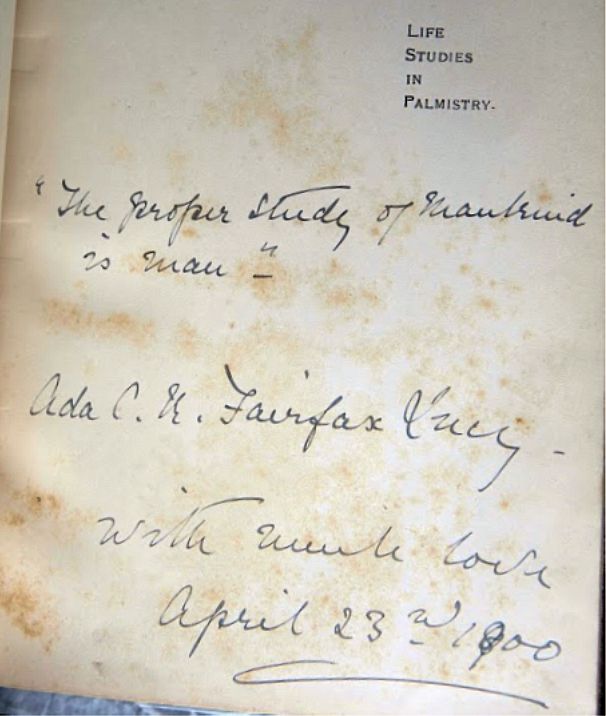 LIFE
STUDIES
IN
PALMISTRY.
"The proper study of Mankind
is man"
Ada C. Fairfax
with much love
April 23rd 1900